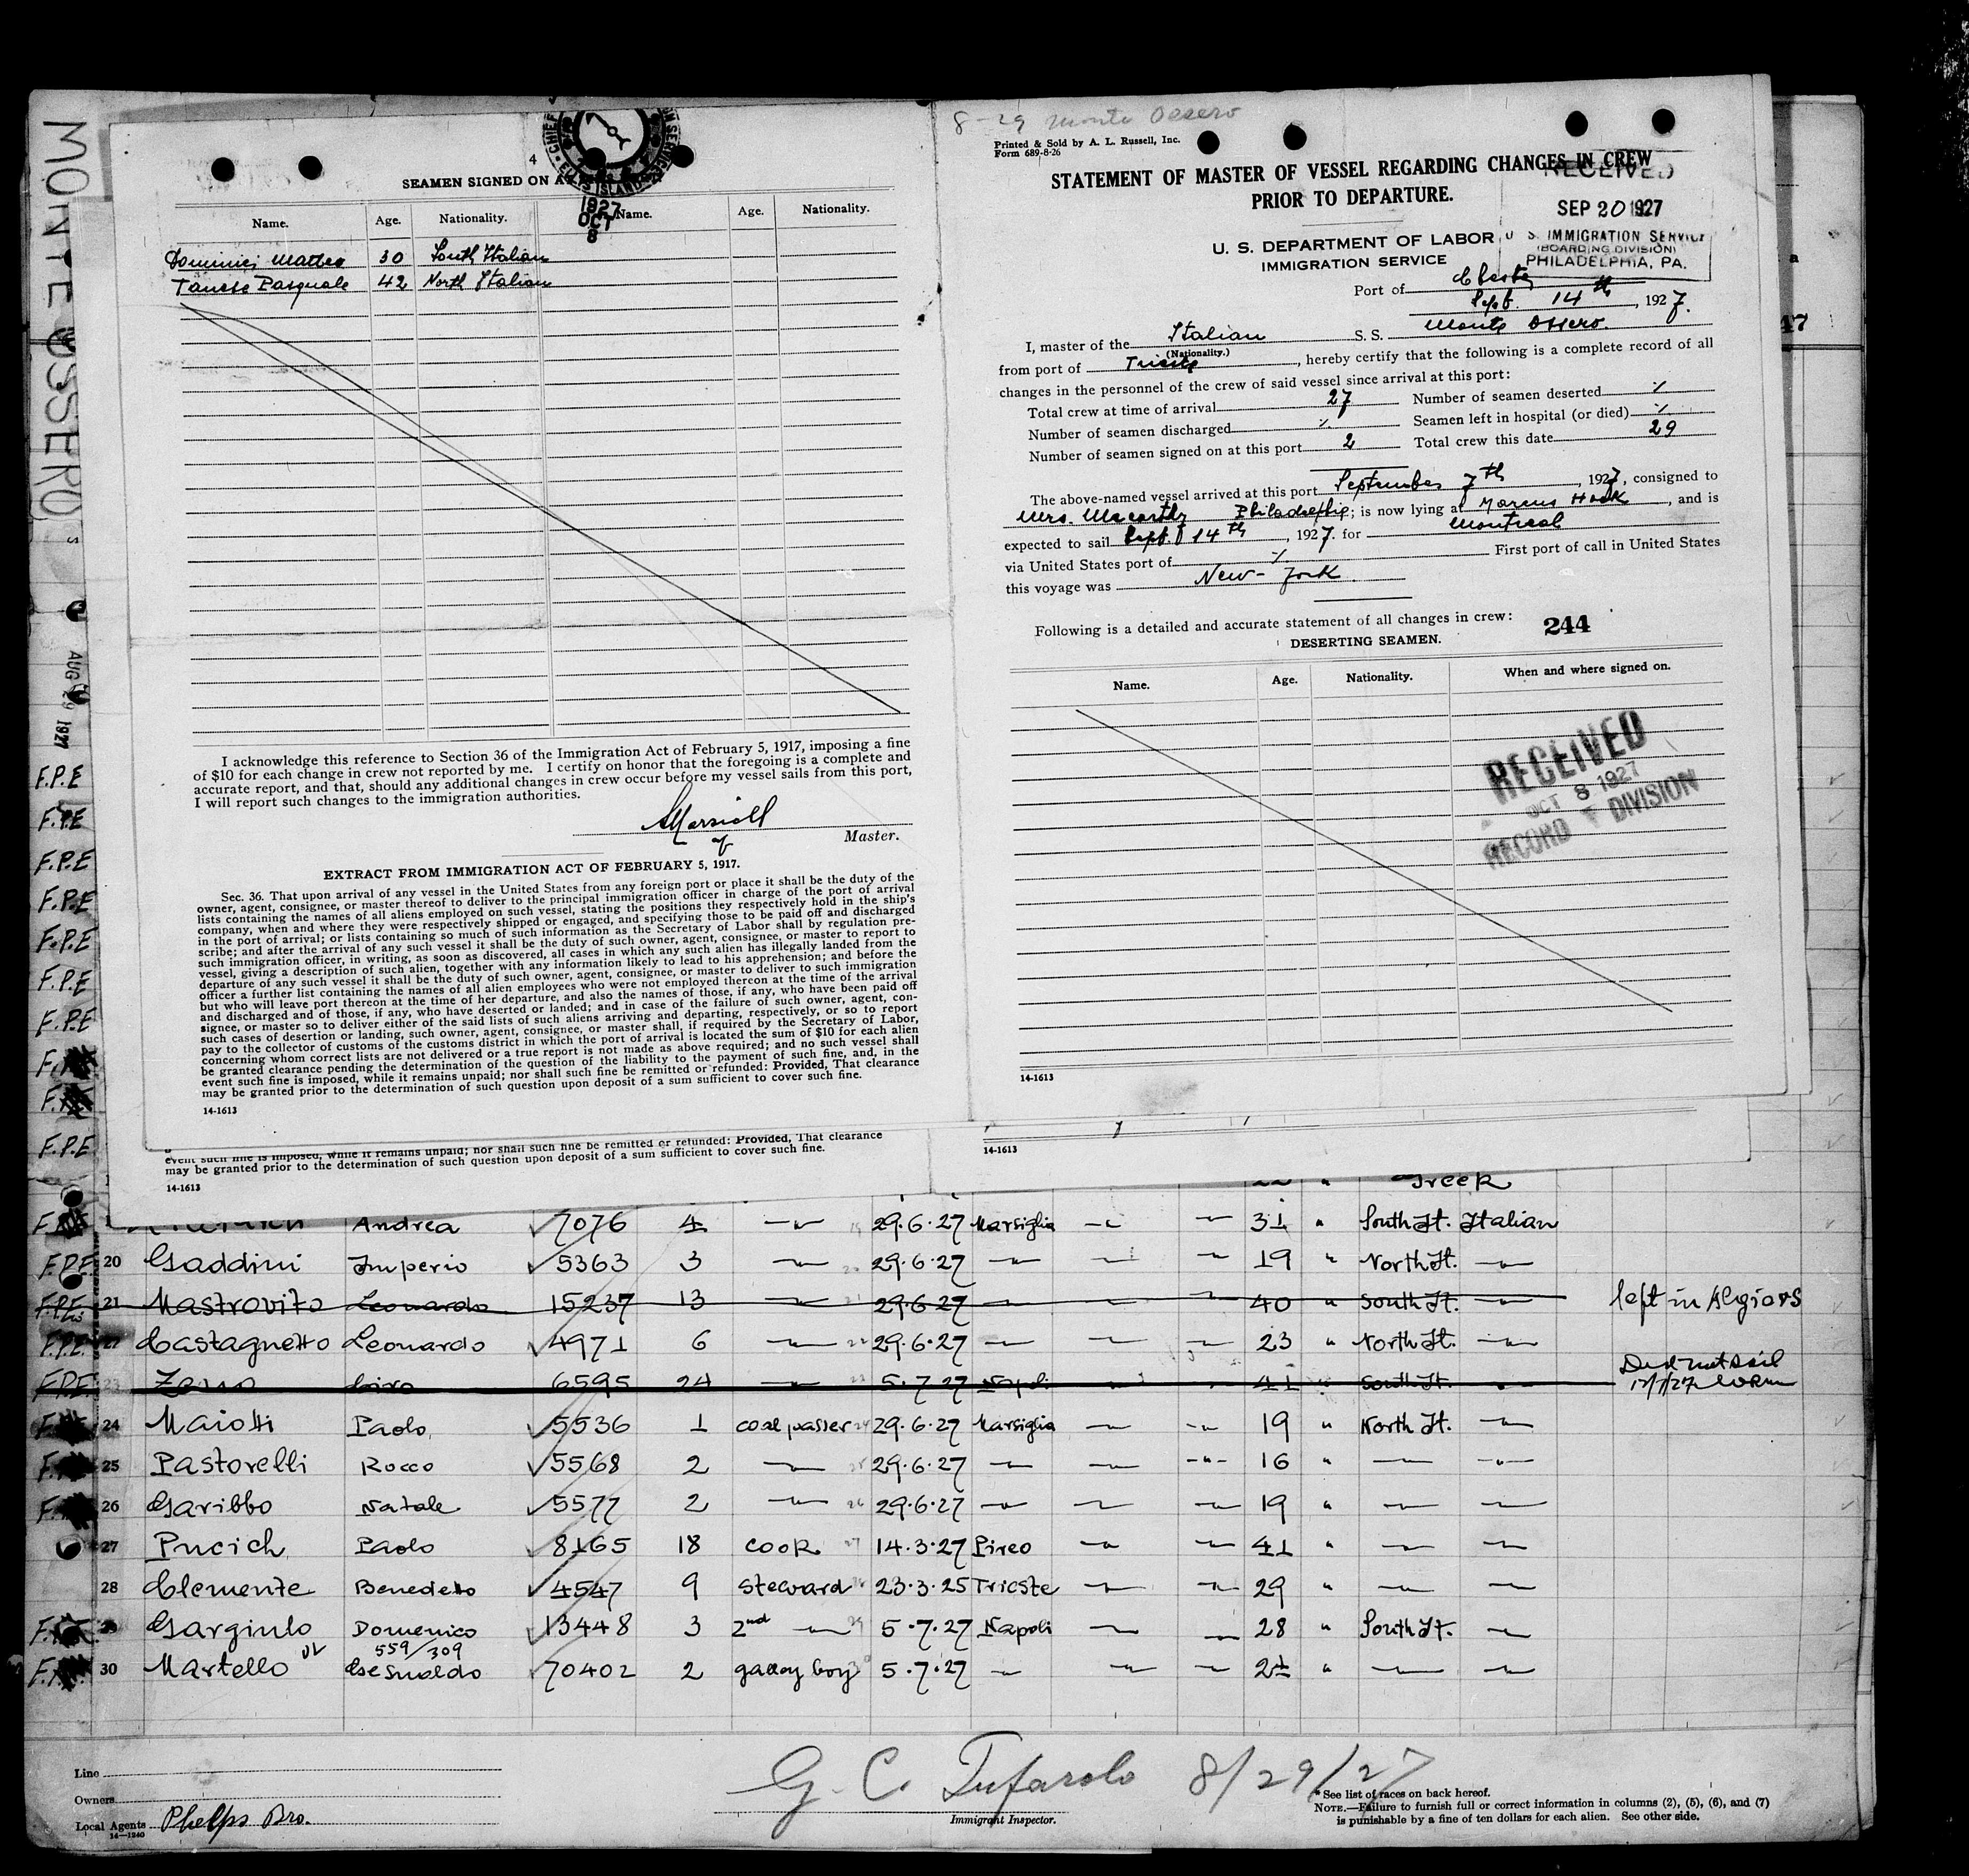 MONTE OSSERO
AUG 29 1927
4
SEAMEN SIGNED ON
1927
OCT
8
Name. Age. Nationality. Name. Age. Nationality.
Dominici Matteo 30 South Italian
Tanese Pasquale 42 North Italian
I acknowledge this reference to Section 36 of the Immigration Act of February 5, 1917, imposing a fine
of $10 for each change in crew not reported by me. I certify on honor that the foregoing is a complete and
accurate report, and that, should any additional changes in crew occur before my vessel sails from this port,
I will report such changes to the immigration authorities.
Master.
EXTRACT FROM IMMIGRATION ACT OF FEBRUARY 5, 1917.
Sec. 36. That upon arrival of any vessel in the United States from any foreign port or place it shall be the duty of the
owner, agent, consignee, or master thereof to deliver to the principal immigration officer in charge of the port of arrival
lists containing the names of all aliens employed on such vessel, stating the positions they respectively hold in the ship's
company, when and where they were respectively shipped or engaged, and specifying those to be paid off and discharged
in the port of arrival; or lists containing so much of such information as the Secretary of Labor shall by regulation pre-
scribe; and after the arrival of any such vessel it shall be the duty of such owner, agent, consignee, or master to report to
such immigration officer, in writing, as soon as discovered, all cases in which any such alien has illegally landed from the
vessel, giving a description of such alien, together with any information likely to lead to his apprehension; and before the
departure of any such vessel it shall be the duty of such owner, agent, consignee, or master to deliver to such immigration
officer a further list containing the names of all alien employees who were not employed thereon at the time of the arrival
but who will leave port thereon at the time of her departure, and also the names of those, if any, who have been paid off
and discharged and of those, if any, who have deserted or landed; and in case of the failure of such owner, agent, con-
signee, or master so to deliver either of the said lists of such aliens arriving and departing, respectively, or so to report
such cases of desertion or landing, such owner, agent, consignee, or master shall, if required by the Secretary of Labor,
pay to the collector of customs of the customs district in which the port of arrival is located the sum of $10 for each alien
concerning whom correct lists are not delivered or a true report is not made as above required; and no such vessel shall
be granted clearance pending the determination of the question of the liability to the payment of such fine, and, in the
event such fine is imposed, while it remains unpaid; nor shall such fine be remitted or refunded: Provided, That clearance
may be granted prior to the determination of such question upon deposit of a sum sufficient to cover such fine.
14-1613
8-29 Monte Ossero
Printed & Sold by A. L. Russell, Inc.
Form 689-8-26
STATEMENT OF MASTER OF VESSEL REGARDING CHANGES IN CREW
PRIOR TO DEPARTURE.
RECEIVED
SEP 20 1927
U. S. IMMIGRATION SERVICE
(BOARDING DIVISION)
PHILADELPHIA, PA.
U. S. DEPARTMENT OF LABOR
IMMIGRATION SERVICE
Port of Chester
Sept. 14th, 1927.
I, master of the Italian S. S. Monte Ossero.
(Nationality.)
from port of Trieste, hereby certify that the following is a complete record of all
changes in the personnel of the crew of said vessel since arrival at this port:
Total crew at time of arrival 27 Number of seamen deserted %
Number of seamen discharged % Seamen left in hospital (or died) %
Number of seamen signed on at this port 2 Total crew this date 29
The above-named vessel arrived at this port September 7th, 1927, consigned to
Mrs. Mccarthy Philadelphia; is now lying at Marcus Hook, and is
expected to sail Sept. 14th, 1927. for Montreal
via United States port of % First port of call in United States
this voyage was New-York.
Following is a detailed and accurate statement of all changes in crew: 244
DESERTING SEAMEN.
Name. Age. Nationality. When and where signed on.
RECEIVED
OCT 8 1927
RECORD DIVISION
14-1613
event such fine is imposed, while it remains unpaid; nor shall such fine be remitted or refunded: Provided, That clearance
may be granted prior to the determination of such question upon deposit of a sum sufficient to cover such fine.
14-1613
14-1613
F.P.E
F.P.E
F.P.E
F.P.E
F.P.E
F.P.E
F.P.E
F.P.E
Greek
Andrea 7076 4 —"— 29.6.27 Marsiglia —"— —"— 31 " South It. Italian
F.P.E. 20 Gaddini Imperio 5363 3 —"— 29.6.27 —"— —"— —"— 19 " North It. —"—
F.P.E. 21 Mastrovito Leonardo 15237 13 —"— 29.6.27 —"— —"— —"— 40 " South It. —"— left in Algiers
F.P.E. 22 Castagnetto Leonardo 4971 6 —"— 29.6.27 —"— —"— —"— 23 " North It. —"—
F.P.E. 23 Zeno Ciro 6595 24 —"— 5.7.27 Napoli —"— —"— 41 " South It. —"— Did not sail
24 Maiotti Paolo 5536 1 coal passer 29.6.27 Marsiglia —"— —"— 19 " North It. —"—
25 Pastorelli Rocco 5568 2 —"— 29.6.27 —"— —"— —"— 16 " —"— —"—
26 Garibbo Natale 5577 2 —"— 29.6.27 —"— —"— —"— 19 " —"— —"—
27 Pucich Paolo 8165 18 cook 14.3.27 Pireo —"— —"— 41 " —"— —"—
28 Clemente Benedetto 4547 9 steward 23.3.25 Trieste —"— —"— 29 " —"— —"—
29 Gargiulo Domenico 13448 3 2nd —"— 5.7.27 Napoli —"— —"— 28 " South It. —"—
559/309
30 Martello Gesualdo 70402 2 galley boy 5.7.27 —"— —"— —"— 21 " —"— —"—
Line
Owners
Local Agents Phelps Bro.
14-1240
G. C. Tufarolo 8/29/27
Immigrant Inspector.
* See list of races on back hereof.
NOTE.—Failure to furnish full or correct information in columns (2), (5), (6), and (7)
is punishable by a fine of ten dollars for each alien. See other side.